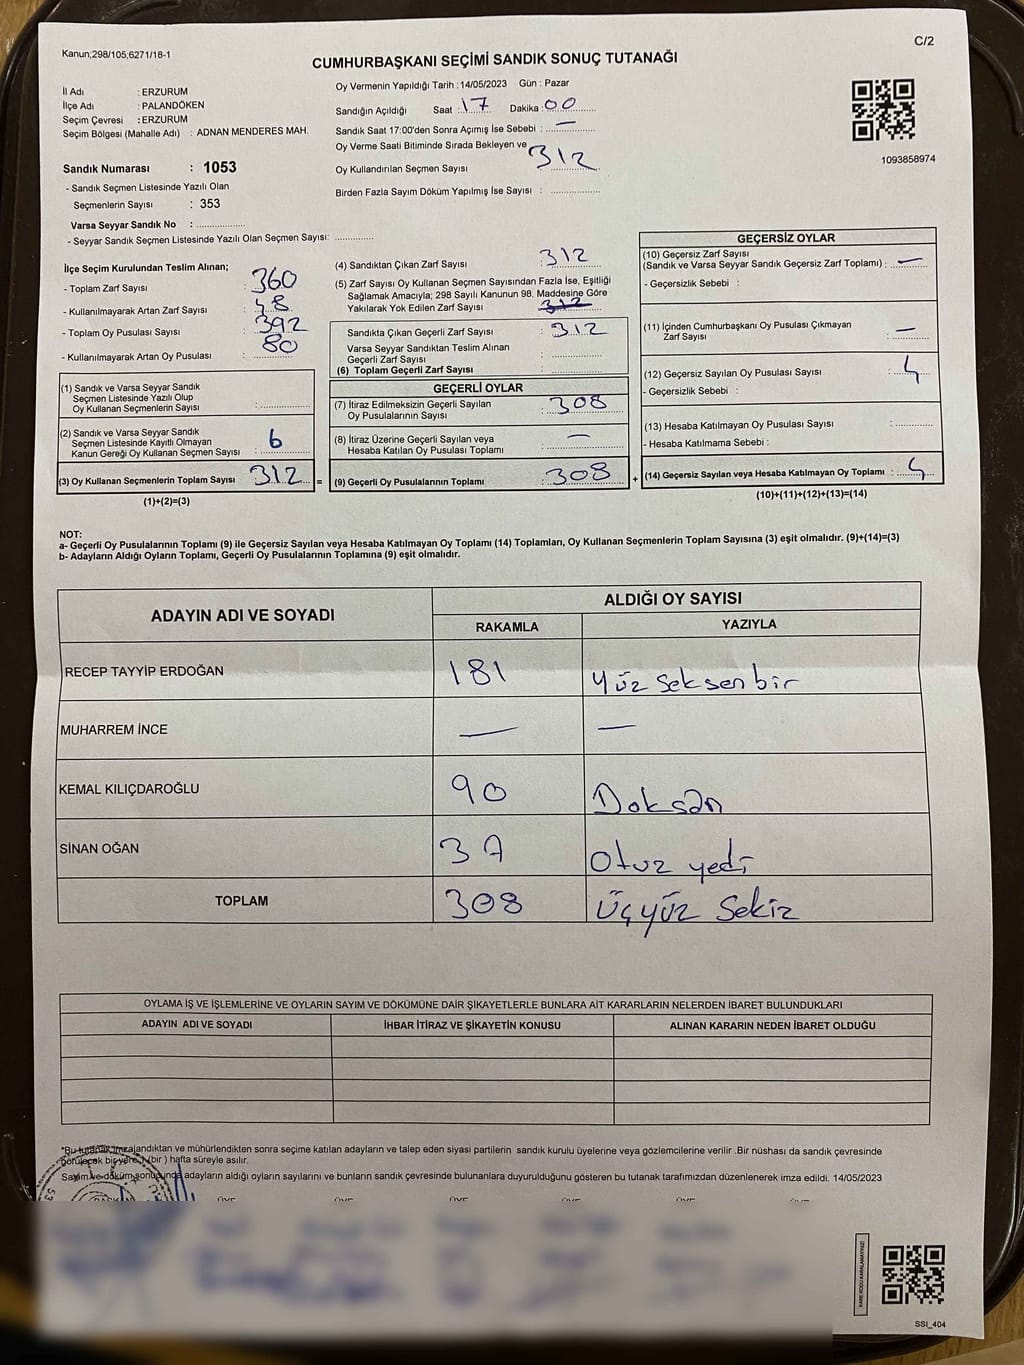 Kanun;298/105,6271/18-1
C/2
CUMHURBAŞKANI SEÇİMİ SANDIK SONUÇ TUTANAĞI
İl Adı : ERZURUM
İlçe Adı : PALANDÖKEN
Seçim Çevresi : ERZURUM
Seçim Bölgesi (Mahalle Adı) : ADNAN MENDERES MAH.
Sandık Numarası : 1053
- Sandık Seçmen Listesinde Yazılı Olan
Seçmenlerin Sayısı : 353
Varsa Seyyar Sandık No : ..............
- Seyyar Sandık Seçmen Listesinde Yazılı Olan Seçmen Sayısı: ............
Oy Vermenin Yapıldığı Tarih : 14/05/2023 Gün : Pazar
Sandığın Açıldığı Saat : 17 Dakika : 00
Sandık Saat 17:00'den Sonra Açımış İse Sebebi : —
Oy Verme Saati Bitiminde Sırada Bekleyen ve
Oy Kullandırılan Seçmen Sayısı 312
Birden Fazla Sayım Döküm Yapılmış İse Sayısı : ..............
1093858974
İlçe Seçim Kurulundan Teslim Alınan;
- Toplam Zarf Sayısı 360
- Kullanılmayarak Artan Zarf Sayısı : 48
- Toplam Oy Pusulası Sayısı : 392
- Kullanılmayarak Artan Oy Pusulası : 80
(1) Sandık ve Varsa Seyyar Sandık
Seçmen Listesinde Yazılı Olup
Oy Kullanan Seçmenlerin Sayısı : ..............
(2) Sandık ve Varsa Seyyar Sandık
Seçmen Listesinde Kayıtlı Olmayan
Kanun Gereği Oy Kullanan Seçmen Sayısı : 6
(3) Oy Kullanan Seçmenlerin Toplam Sayısı : 312 =
(1)+(2)=(3)
(4) Sandıktan Çıkan Zarf Sayısı : 312
(5) Zarf Sayısı Oy Kullanan Seçmen Sayısından Fazla İse, Eşitliği
Sağlamak Amacıyla; 298 Sayılı Kanunun 98. Maddesine Göre
Yakılarak Yok Edilen Zarf Sayısı : 312
Sandıkta Çıkan Geçerli Zarf Sayısı : 312
Varsa Seyyar Sandıktan Teslim Alınan
Geçerli Zarf Sayısı : ..............
(6) Toplam Geçerli Zarf Sayısı : ..............
GEÇERLİ OYLAR
(7) İtiraz Edilmeksizin Geçerli Sayılan
Oy Pusulalarının Sayısı : 308
(8) İtiraz Üzerine Geçerli Sayılan veya
Hesaba Katılan Oy Pusulası Toplamı : —
(9) Geçerli Oy Pusulalarının Toplamı : 308 +
GEÇERSİZ OYLAR
(10) Geçersiz Zarf Sayısı
(Sandık ve Varsa Seyyar Sandık Geçersiz Zarf Toplamı) : —
- Geçersizlik Sebebi :
(11) İçinden Cumhurbaşkanı Oy Pusulası Çıkmayan
Zarf Sayısı : —
(12) Geçersiz Sayılan Oy Pusulası Sayısı : 4
- Geçersizlik Sebebi :
(13) Hesaba Katılmayan Oy Pusulası Sayısı : ..............
- Hesaba Katılmama Sebebi :
(14) Geçersiz Sayılan veya Hesaba Katılmayan Oy Toplamı : 4
(10)+(11)+(12)+(13)=(14)
NOT:
a- Geçerli Oy Pusulalarının Toplamı (9) ile Geçersiz Sayılan veya Hesaba Katılmayan Oy Toplamı (14) Toplamları, Oy Kullanan Seçmenlerin Toplam Sayısına (3) eşit olmalıdır. (9)+(14)=(3)
b- Adayların Aldığı Oyların Toplamı, Geçerli Oy Pusulalarının Toplamına (9) eşit olmalıdır.
ADAYIN ADI VE SOYADI ALDIĞI OY SAYISI
RAKAMLA YAZIYLA
RECEP TAYYİP ERDOĞAN 181 Yüz Seksen bir
MUHARREM İNCE — —
KEMAL KILIÇDAROĞLU 90 Doksan
SİNAN OĞAN 37 Otuz yedi
TOPLAM 308 Üçyüz Sekiz
OYLAMA İŞ VE İŞLEMLERİNE VE OYLARIN SAYIM VE DÖKÜMÜNE DAİR ŞİKAYETLERLE BUNLARA AİT KARARLARIN NELERDEN İBARET BULUNDUKLARI
ADAYIN ADI VE SOYADI İHBAR İTİRAZ VE ŞİKAYETİN KONUSU ALINAN KARARIN NEDEN İBARET OLDUĞU
*Bu tutanak imzalandıktan ve mühürlendikten sonra seçime katılan adayların ve talep eden siyasi partilerin sandık kurulu üyelerine veya gözlemcilerine verilir .Bir nüshası da sandık çevresinde
görülecek bir yere 1 (bir ) hafta süreyle asılır.
Sayım ve döküm sonucunda adayların aldığı oyların sayılarını ve bunların sandık çevresinde bulunanlara duyurulduğunu gösteren bu tutanak tarafımızdan düzenlenerek imza edildi. 14/05/2023
KARE KODU KARALAMAYINIZ!
SSI_404